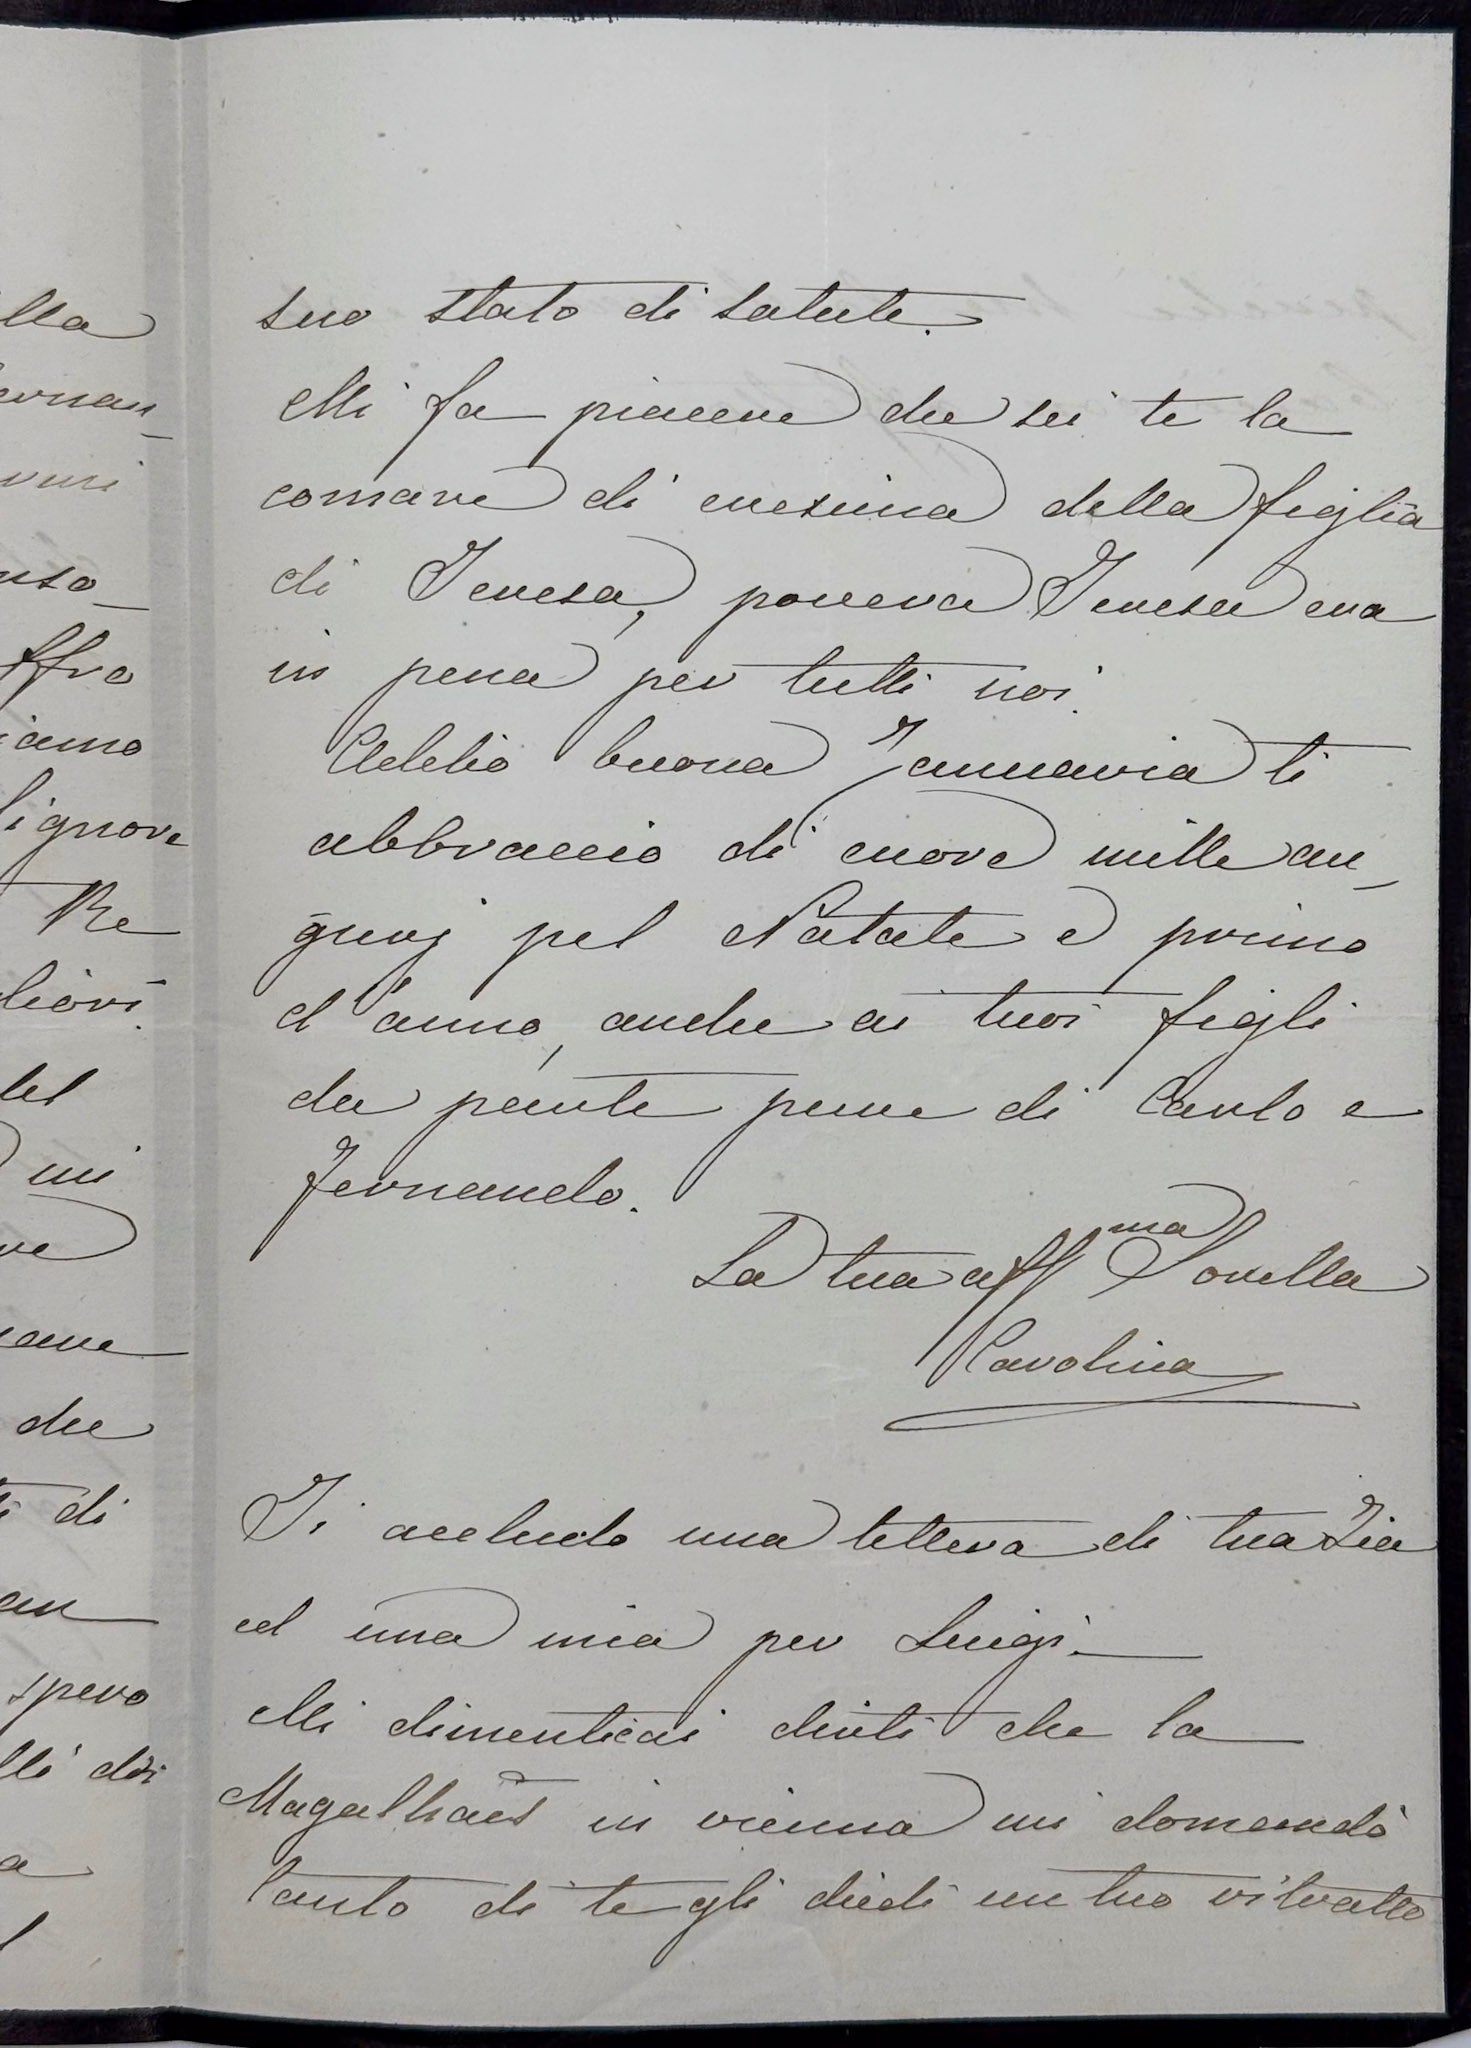 lla
ernan_
nso_
ffro
iamo
Signore
Re
liori.
del
mi
re
che
di
an
spero
a
l
suo stato di salute.
Mi fa piacere che sei te la
comare di cresima della figlia
di Teresa, povera Teresa era
in pena per tutti noi.
Addio buona Januaria ti
abbraccio di cuore mille au_
gurj pel Natale e primo
d'anno, anche ai tuoi figli
da parte pure di Carlo e
Fernando.
La tua aff ma Sorella
Carolina
Ti accludo una lettera di tua Zia
ed una mia per Luigi.
Mi dimenticai dirti che la
Magalhaẽs in vienna mi domandò
tanto di te gli diedi un tuo ritratto